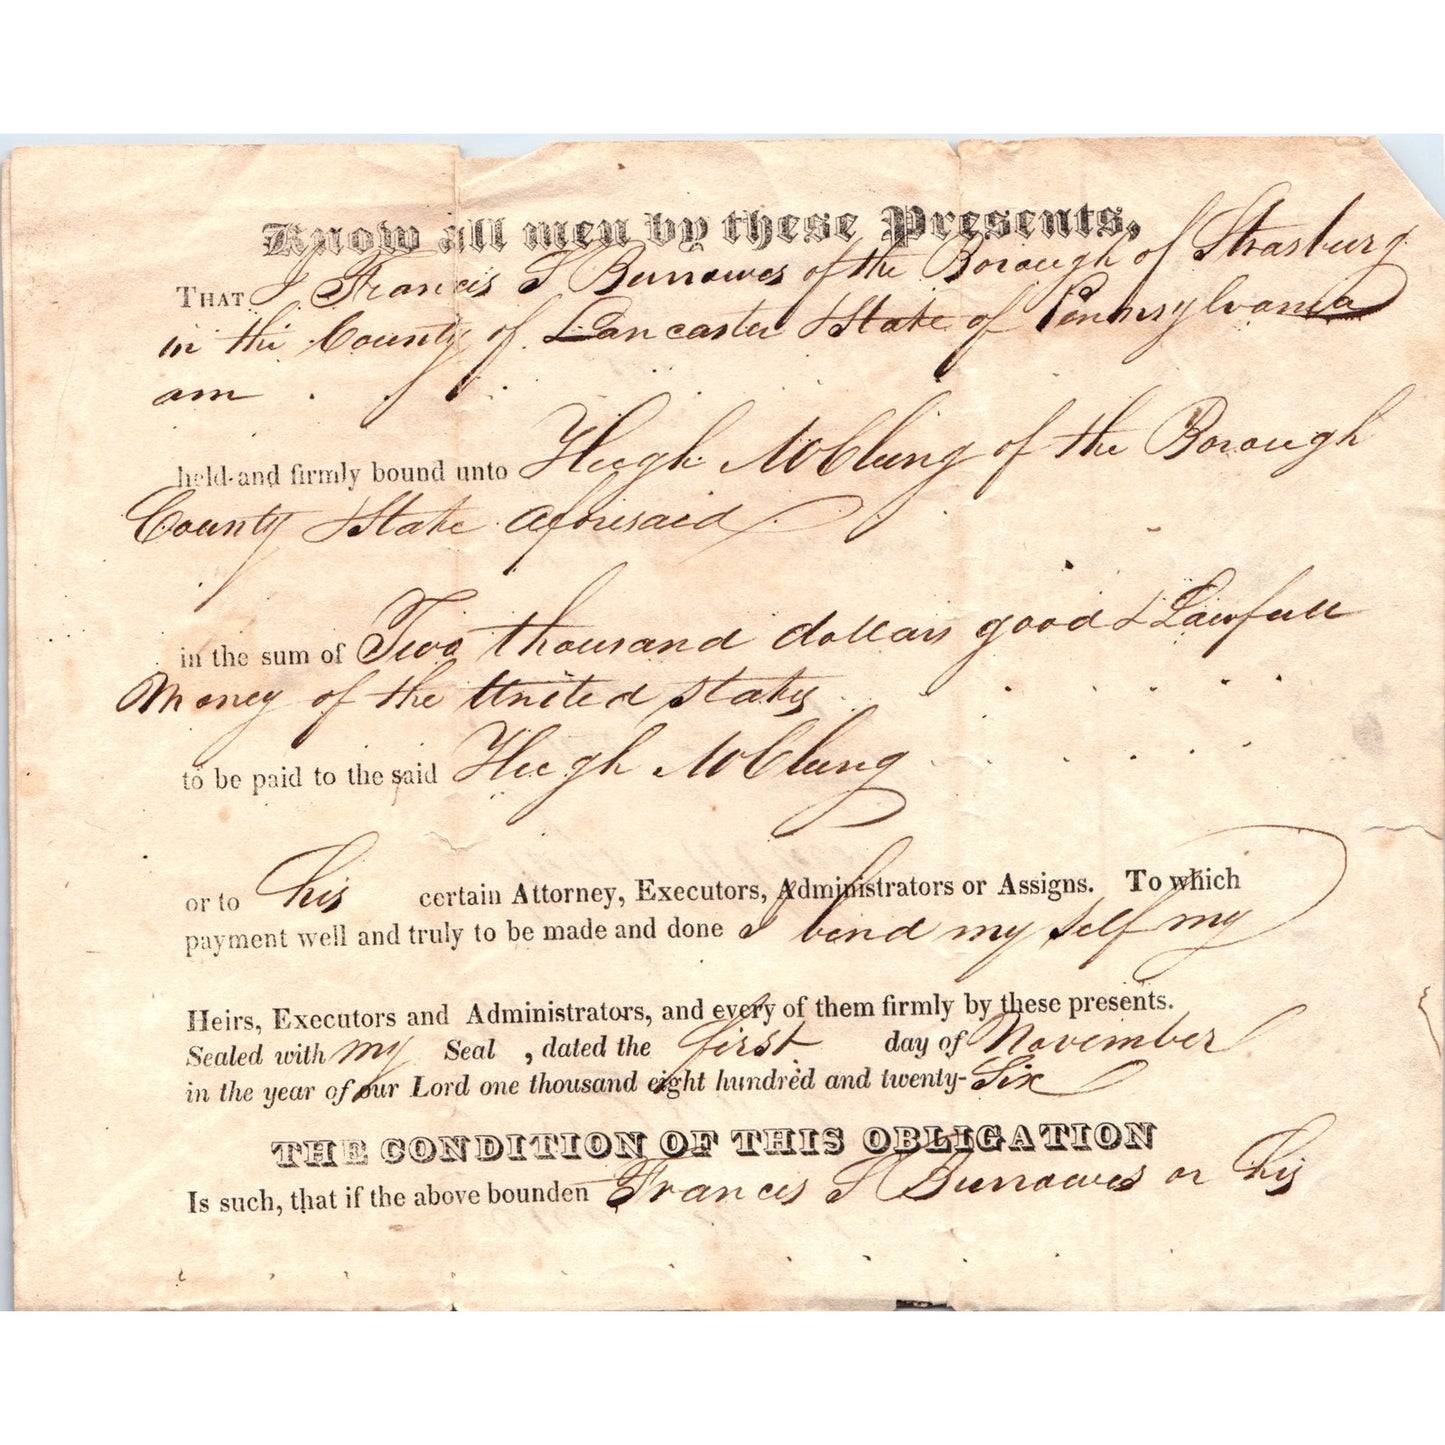 Know all men by these Presents,
THAT I Francis S Burrowes of the Borough of Strasburg
in the County of Lancaster & State of Pennsylvania
am
held and firmly bound unto Hugh McClung of the Borough
County & State aforesaid
in the sum of Two thousand dollars good & Lawfull
Money of the United States
to be paid to the said Hugh McClung
or to his certain Attorney, Executors, Administrators or Assigns. To which
payment well and truly to be made and done I bind my self my
Heirs, Executors and Administrators, and every of them firmly by these presents.
Sealed with my Seal , dated the first day of November
in the year of our Lord one thousand eight hundred and twenty-Six
THE CONDITION OF THIS OBLIGATION
Is such, that if the above bounden Francis S Burrowes or his